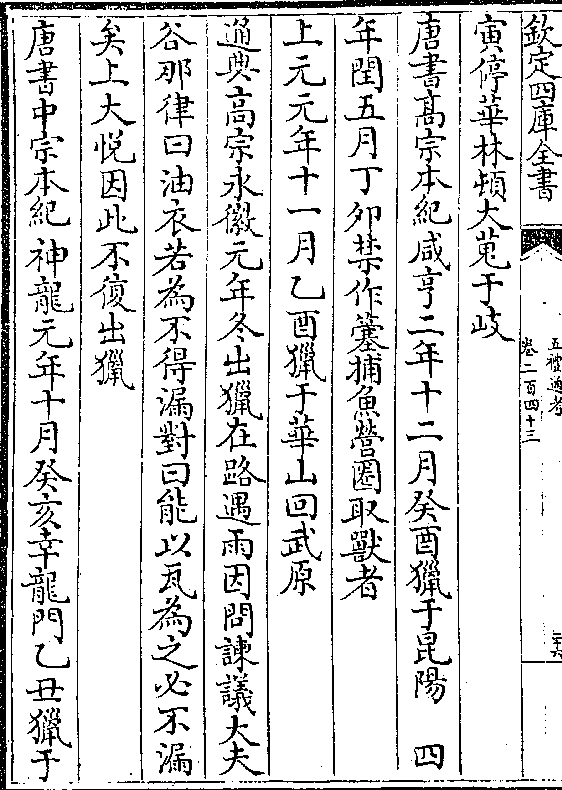 欽定四庫全書
五禮通考
卷二百四十三
二十六
寅停華林頓大蒐于岐
唐書髙宗本紀咸亨二年十二月癸酉獵于昆陽 四
年閏五月丁卯禁作簺捕魚營圈取獸者
上元元年十一月乙酉獵于華山囘武原
通典高宗永徽元年冬出獵在路遇雨因問諫議大夫
谷那律曰油衣若為不得漏對曰能以瓦為之必不漏
矣上大悅因此不復出獵
唐書中宗本紀神龍元年十月癸亥幸龍門乙丑獵于